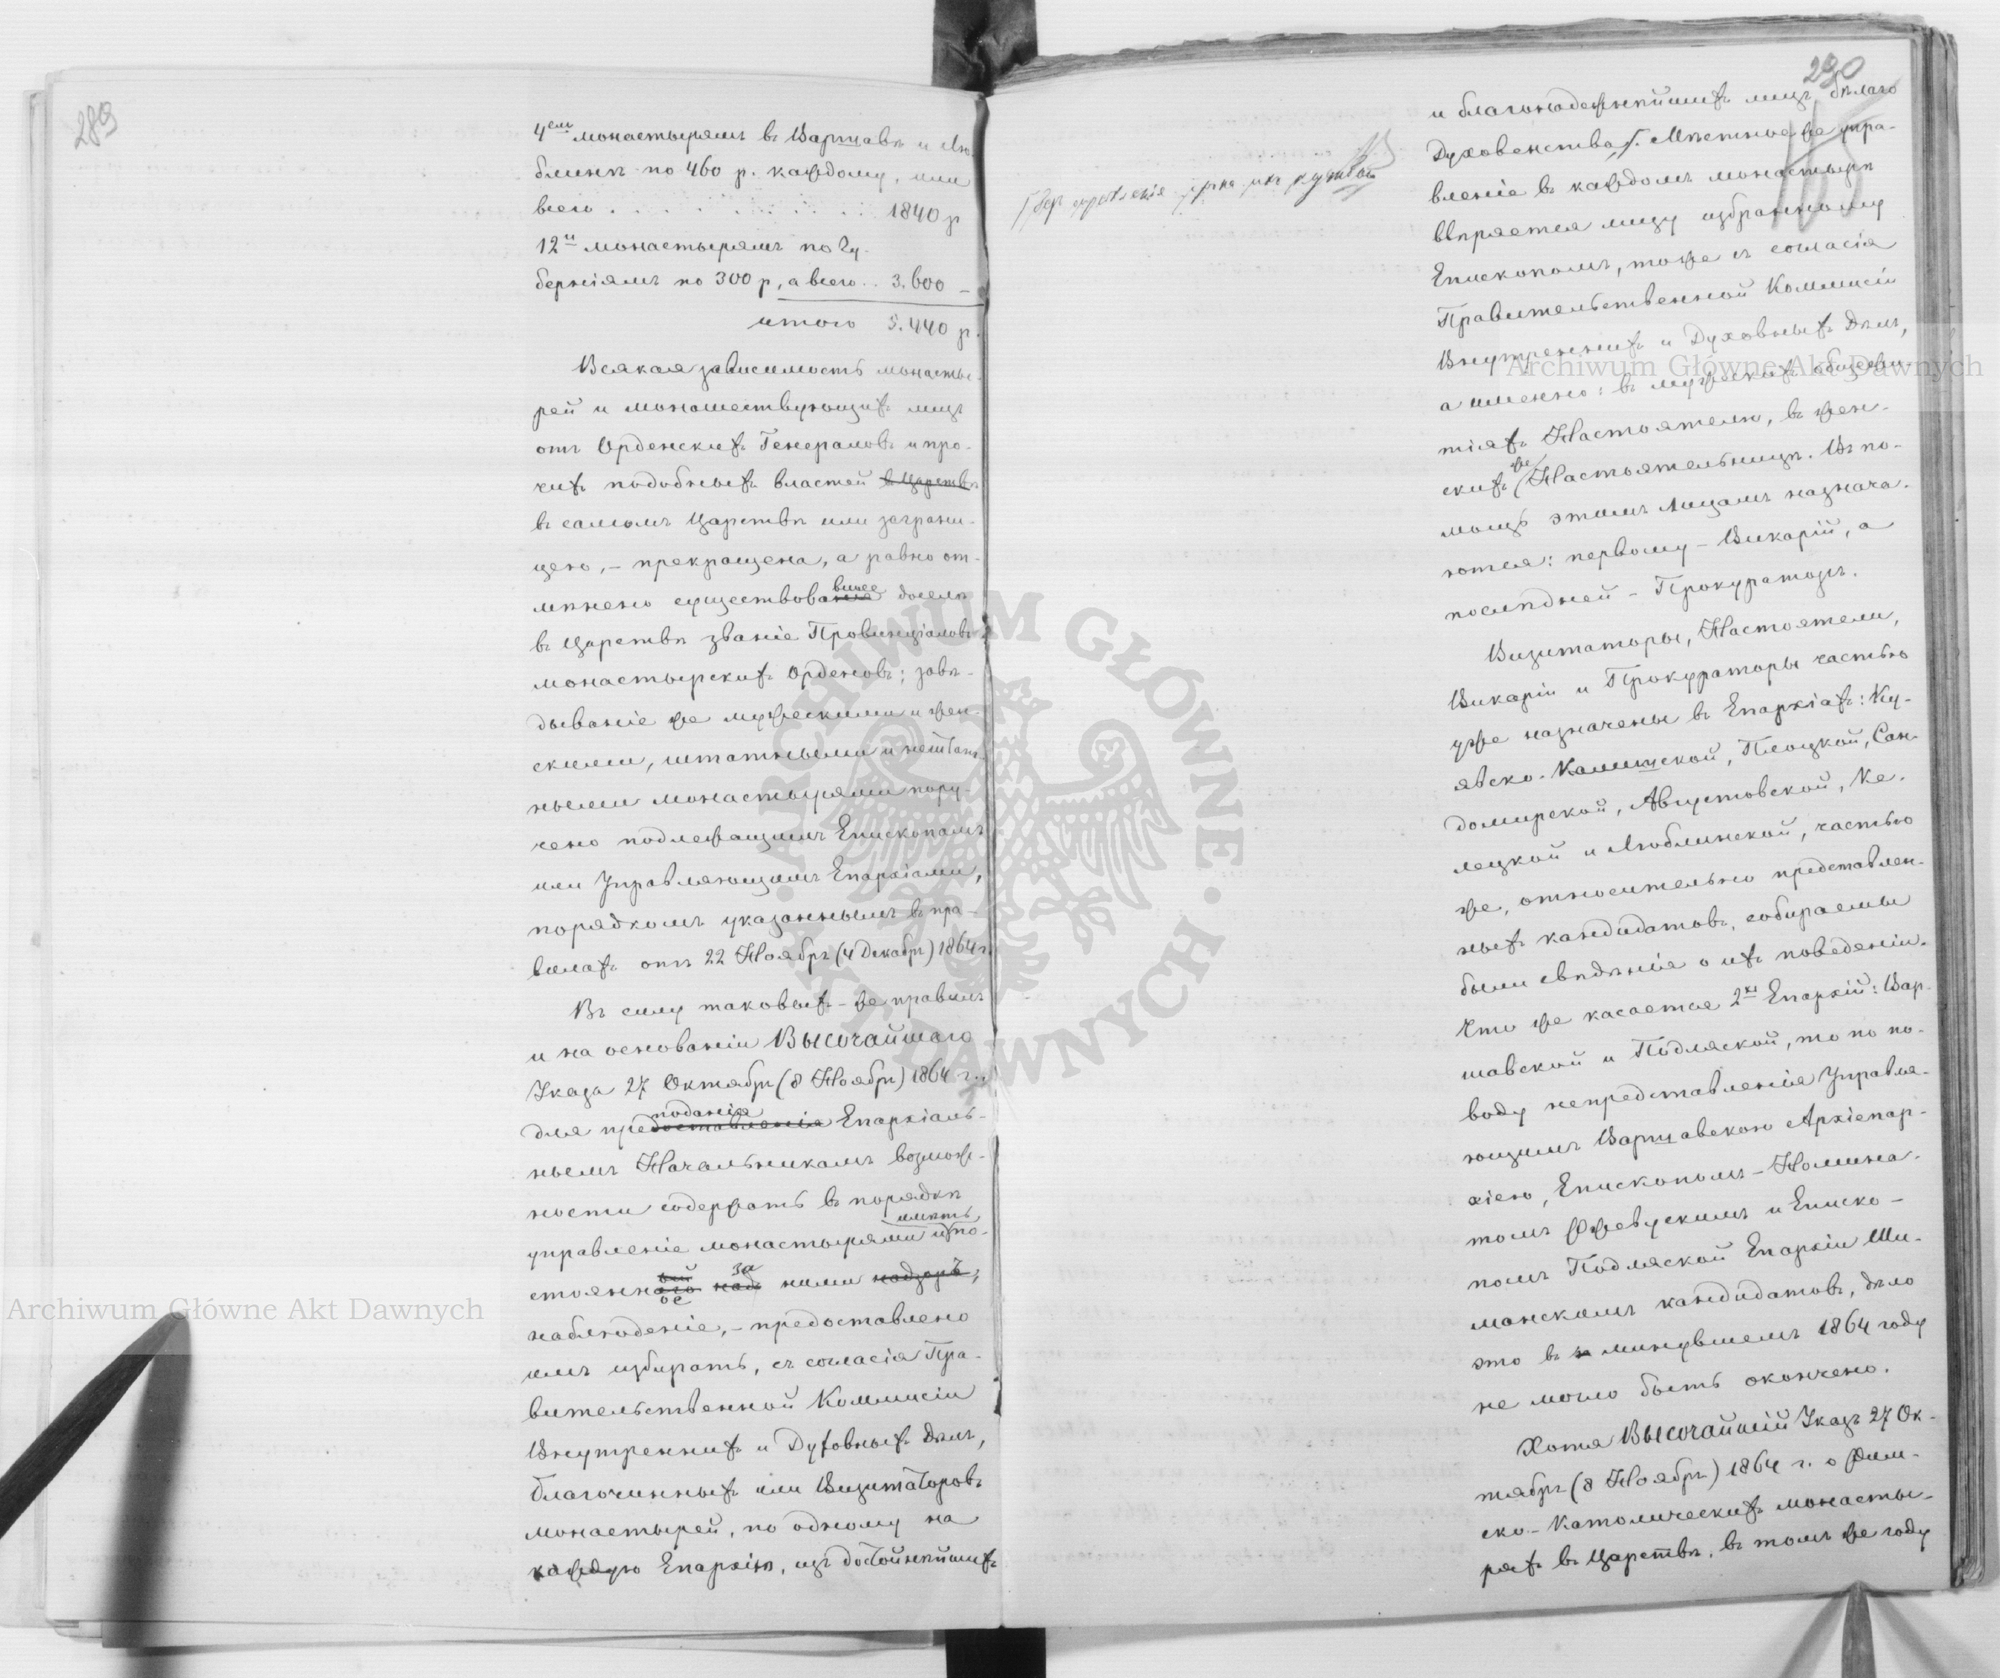 289
4ем монастырямъ въ Варшавѣ и Лю-
блинѣ по 460 р. каждому, или
всего . . . . . . . . . . 1840 р
12и монастырямъ по Гу-
берніямъ по 300 р, а всего .. 3.600 –
итого 5.440 р.
Всякая зависимость монасты-
рей и монашествующихъ лицъ
отъ Орденскихъ Генераловъ и про-
чихъ подобныхъ властей въ Царствѣ
въ самомъ Царствѣ или заграни-
цею, – прекращена, а равно от-
мѣнено существовавшее доселѣ
въ Царствѣ званіе Провинціаловъ
монастырскихъ Орденовъ; завѣ-
дываніе же мужескими и жен-
скими, штатными и нештат-
ными монастырями пору-
чено подлежащимъ Епископамъ
или Управляющимъ Епархіами,
порядкомъ указаннымъ въ пра-
вилахъ отъ 22 Ноября (4 Декабря) 1864 г.
Въ силу таковыхъ-же правилъ
и на основаніи Высочайшаго
Указа 27 Октября (8 Ноября) 1864 г.,
поданія
для предоставленія Епархіаль-
нымъ Начальникамъ возмож-
ности содержать въ порядкѣ
имѣть
управленіе монастырями и по-
стоянное за ними надзоръ;
наблюденіе, – предоставлено
имъ избирать, съ согласія Пра-
вительственной Коммисіи
Внутреннихъ и Духовныхъ Дѣлъ,
благочинныхъ или Визитаторовъ
монастырей, по одному на
каждую Епархію, изъ достойнѣйшихъ
290
и благонадежнѣйшихъ лицъ бѣлаго
Духовенства. Мѣстное же упра-
вленіе въ каждомъ монастырѣ
ввѣряется лицу избранному
Епископомъ, тоже съ согласія
Правительственной Коммисіи
Внутреннихъ и Духовныхъ Дѣлъ,
а именно: въ мужескихъ обществен-
тіяхъ Настоятелю, въ жен-
скихъ же Настоятельницѣ. Въ по-
мощь этимъ лицамъ назнача-
ются: первому – Викарій, а
послѣдней – Прокураторъ.
Визитаторы, Настоятели,
Викаріи и Прокураторы частью
уже назначены въ Епархіахъ: Ку-
явско-Калишской, Плоцкой, Сан-
домирской, Августовской, Ке-
лецкой и Люблинской, частью
же, относительно представлен-
ныхъ кандидатовъ, собираемы
были свѣдѣнія о ихъ поведеніи.
Что же касается 2хъ Епархій: Вар-
шавской и Подляской, то по по-
воду непредставленія Управля-
ющимъ Варшавскою Архіепар-
хіею, Епископомъ-Номина-
томъ Ржевускимъ и Еписко-
помъ Подляской Епархіи Ши-
манскимъ кандидатовъ, дѣло
это въ минувшемъ 1864 году
не могло быть окончено.
Хотя Высочайшій Указъ 27 Ок-
тября (8 Ноября) 1864 г. о Рим-
ско-Католическихъ монасты-
ряхъ въ Царствѣ, въ томъ же году
Archiwum Główne Akt Dawnych
Archiwum Główne Akt Dawnych
ARCHIWUM GŁÓWNE · AKT DAWNYCH ·